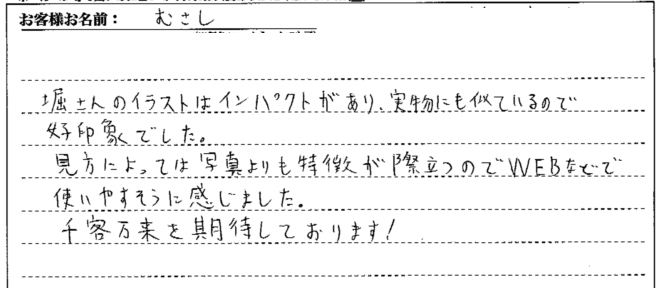 お客様お名前： むさし
堀さんのイラストはインパクトがあり、実物にも似ているので
好印象でした。
見方によっては写真よりも特徴が際立つのでWEBなどで
使いやすそうに感じました。
千客万来を期待しております!